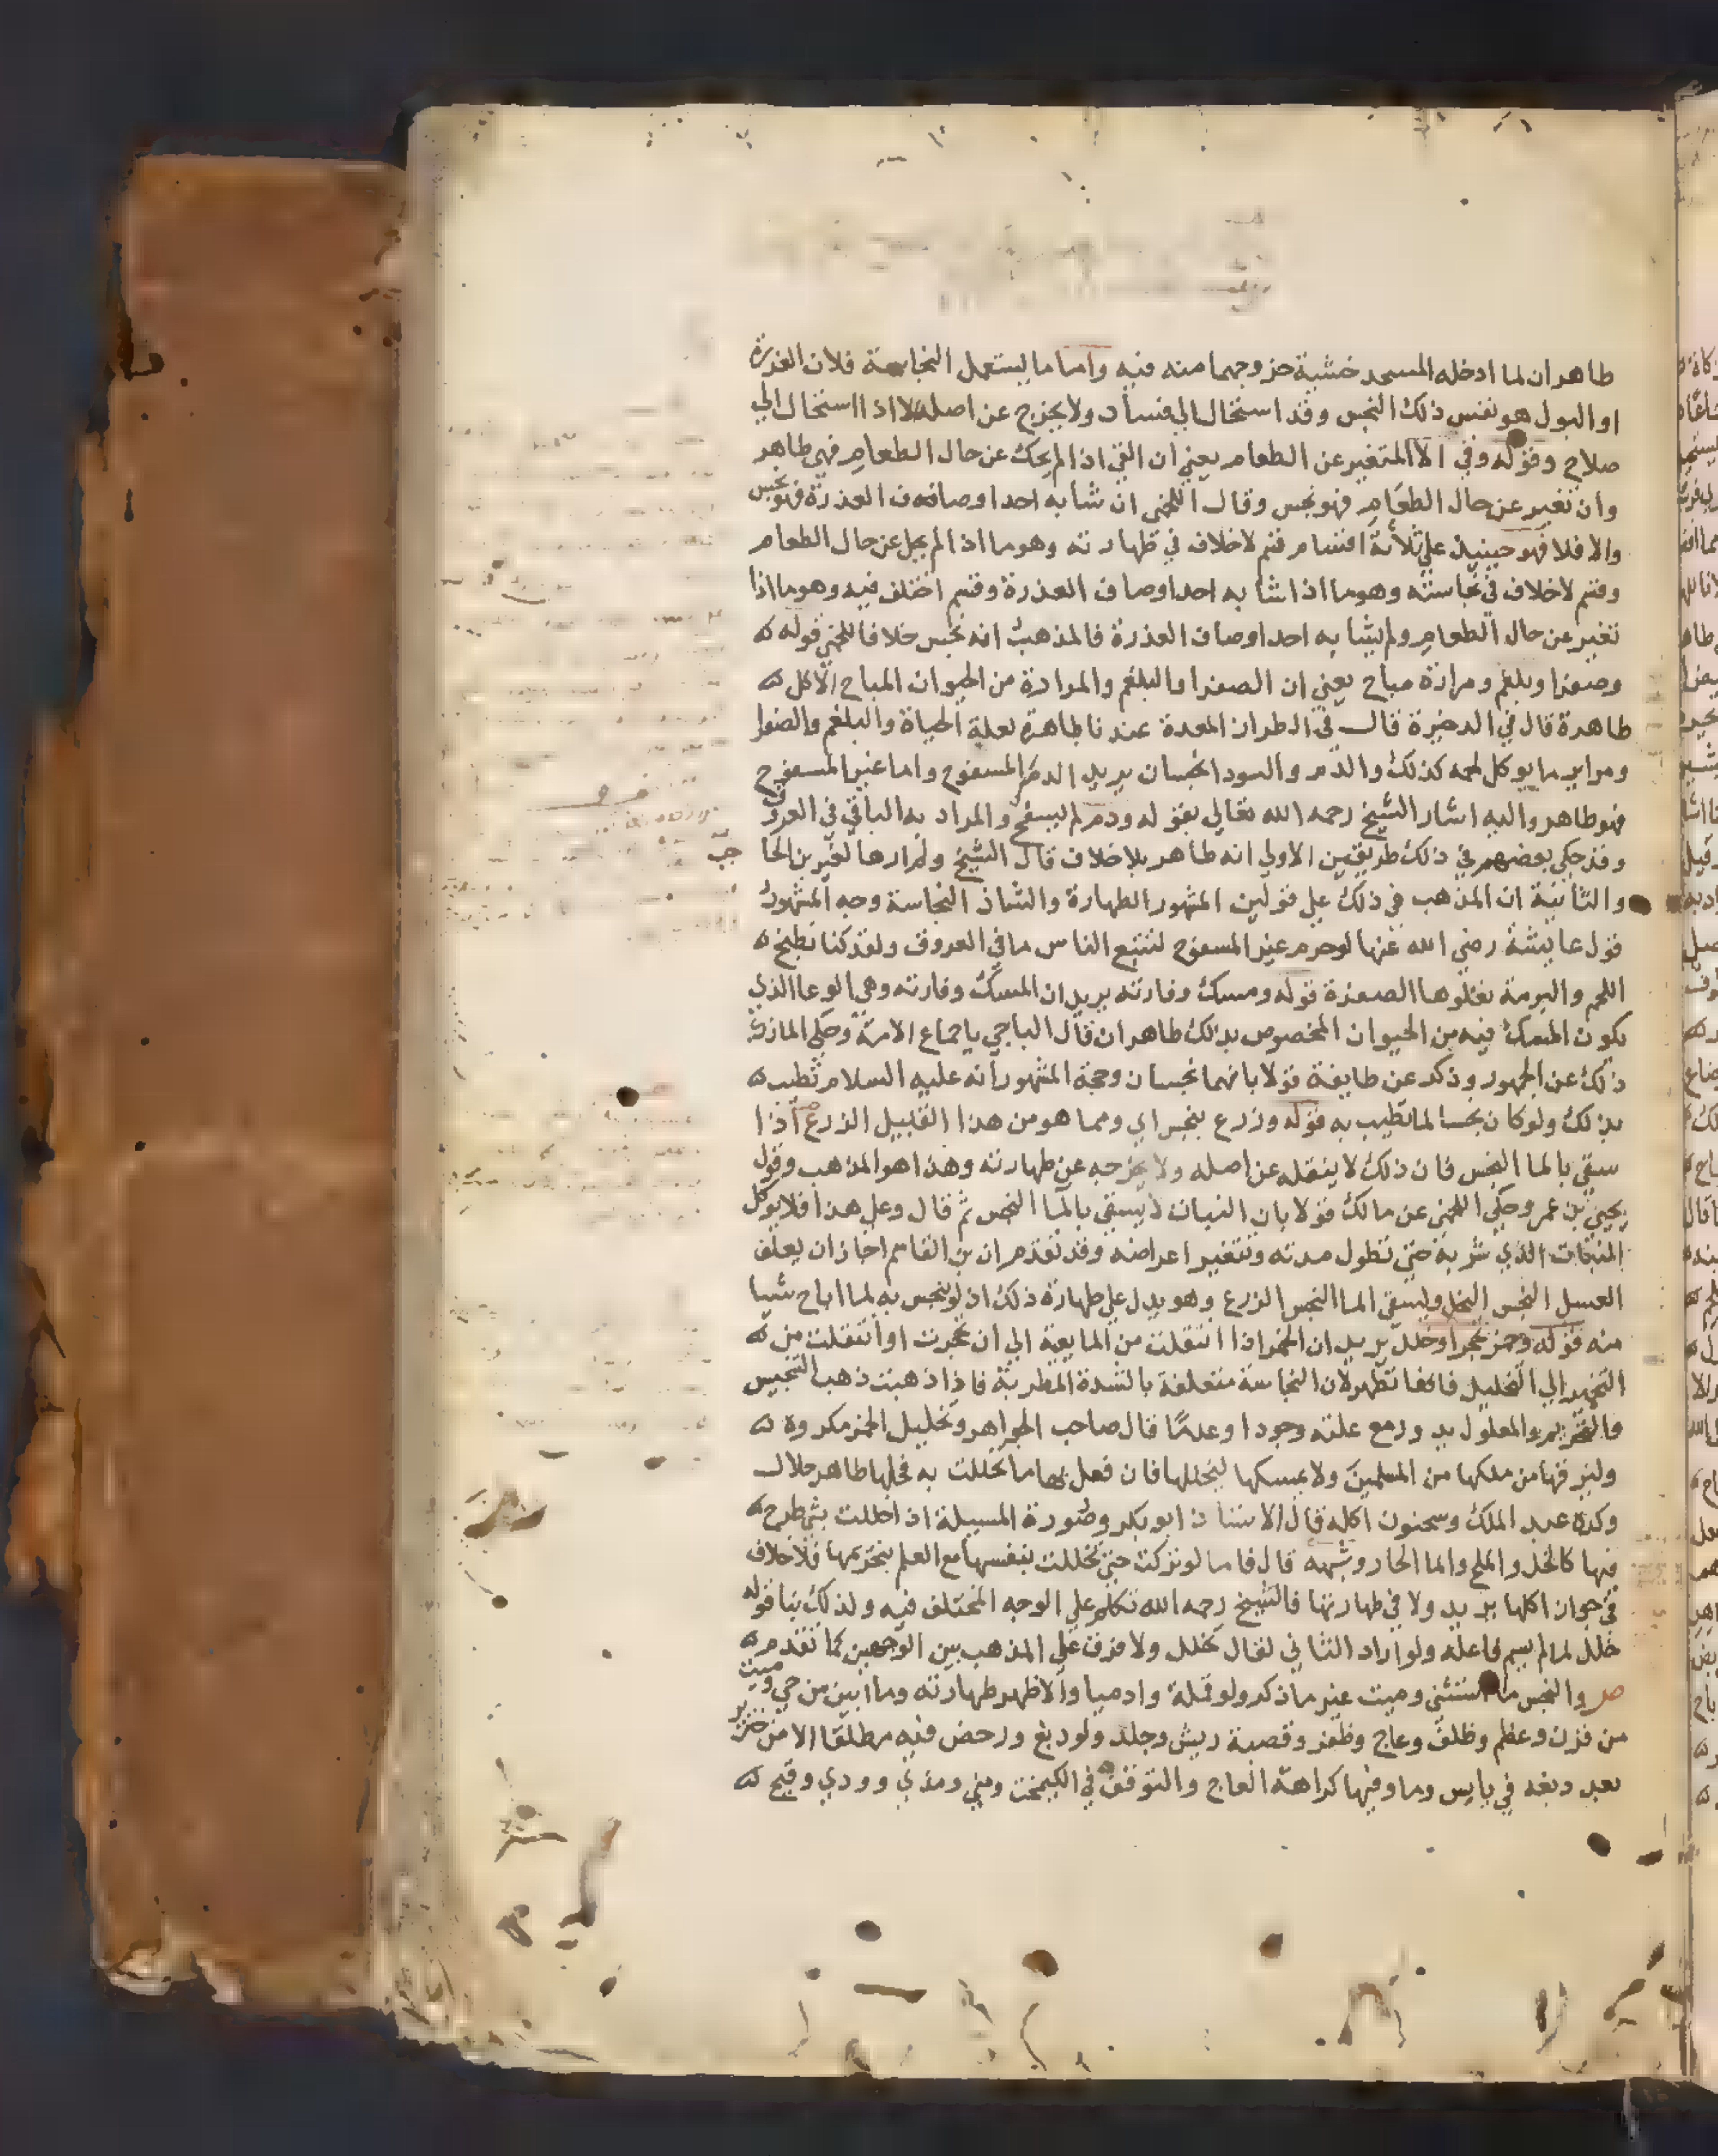 طاهران لما ادخله المسجد خشية خروجهما منه فيه واما ما يستعمل النجاسة فلان العذرة
او البول هو نفس ذلك النجس وقد استحال الي فساد ولا يخرج عن اصله الا اذا استحال الي
صلاح وقوله وقي الا المتغير عن الطعام يعني ان القي اذا لم يحك عن حال الطعام فهي طاهر
وان تغير عن حال الطعام فهو نجس وقال اللخمي ان شابه احد اوصاف العذرة فهو نجس
والا فلا فهو حينيذ علي ثلاثة اقسام قسم لا خلاف في طهارته وهو ما اذا لم يحل عن حال الطعام
وقسم لا خلاف في نجاسته وهو ما اذا شابه احد اوصاف العذرة وقسم اختلف فيه وهو ما اذا
تغير عن حال الطعام ولم يشابه احد اوصاف العذرة فالمذهب انه نجس خلافا للخمي قوله
وصفرا وبلغم ومرارة مباح يعني ان الصفرا والبلغم والمرارة من الحيوان المباح الاكل
طاهرة قال في الدخيرة قال في الطراز المعدة عندنا طاهرة لعلة الحياة والبلغم والصفرا
ومراير ما يوكل لحمه كذلك والدم والسودا نجسان يريد الدم المسفوح واما غير المسفوح
فهو طاهر واليه اشار الشيخ رحمه الله تعالي بقوله ودم لم يسفح والمراد به الباقي في العروق
وقد حكي بعضهم في ذلك طريقين الاولي انه طاهر بلا خلاف قال الشيخ ولم ارها لغير بن الحاجب
والثانية ان المذهب في ذلك علي قولين المشهور الطهارة والشاذ النجاسة وجه المشهور
قول عايشة رضي الله عنها لو حرم غير المسفوح لتتبع الناس ما في العروق ولقد كنا نطبخ
اللحم والبرمة تعلوها الصفرة قوله ومسك وفارته يريد ان المسك وفارته وهي الوعا الذي
يكون المسك فيه من الحيوان المخصوص بذلك طاهران قال الباجي باجماع الامة وحكي المازري
ذلك عن الجمهور وذكر عن طايفة قولا بانهما نجسان وحجة المشهور انه عليه السلام تطيب
بذلك ولو كان نجسا لما تطيب به قوله وزرع بنجس اي ومما هو من هذا القبيل الزرع اذا
سقي بالما النجس فان ذلك لا ينقله عن اصله ولا يخرجه عن طهارته وهذا هو المذهب وقول
يحيي بن عمر وحكي اللخمي عن مالك قولا بان النبات لا يسقي بالما النجس ثم قال وعلي هذا فلا يوكل
النبات الذي شربه حتي تطول مدته وتتغير اعراضه وقد تقدم ان بن القاسم اجاز ان يعلف
العسل النجس النحل ويسقي الما النجس الزرع وهو يدل علي طهارة ذلك اذ لو نجس به لما اباح شيا
منه قوله وخمر تحجر او خلل يريد ان الخمر اذا انتقلت من المايعة الي ان تحجرت او انتقلت من
التخمير الي التخليل فانها تطهر لان النجاسة متعلقة بالشدة المطربة فاذا ذهبت ذهب التنجيس
والتحريم والمعلول يدور مع علته وجودا وعدما قال صاحب الجواهر وتخليل الخمر مكروه
وليرقها من ملكها من المسلمين ولا يمسكها ليخللها فان فعل بها ما تخللت به فخلها طاهر حلال
وكره عبد الملك وسحنون اكله قال الاستاذ ابو بكر وصورة المسيلة اذا خللت بشي طرح
فيها كالخل والملح والما الحار وشبهه قال فاما لو تركت حتي تخللت بنفسها مع العلم بتحريمها فلا خلاف
في جواز اكلها يريد ولا في طهارتها فالشيخ رحمه الله تكلم علي الوجه المختلف فيه ولذلك بنا قوله
خلل لما لم يسم فاعله ولو اراد الثاني لقال تخلل ولا فرق علي المذهب بين الوجهين كما تقدم
ص والنجس ما استثني وميت غير ما ذكر ولو قملة وادميا والاظهر طهارته وما ابين من حي وميت
من قرن وعظم وظلف وعاج وظفر وقصبة ريش وجلد ولو دبغ ورخص فيه مطلقا الا من خنزير
بعد دبغه في يابس وما وفيها كراهة العاج والتوقف في الكيمخت ومني ومذي وودي وقيح